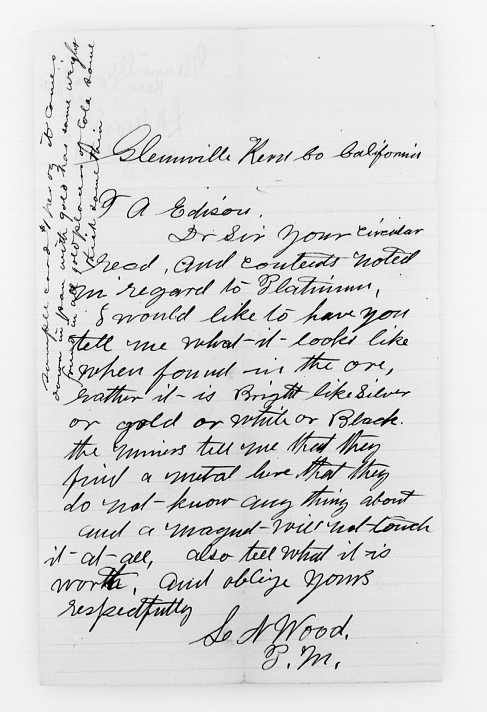 Glennville Kern Co California
T A Edison.
Dr Sir Your circular
read, and contents noted
in regard to Platinum,
I would like to have you
tell me what-it-looks like
when found in the ore,
rather it-is Bright like Silver
or gold or white or Black.
the miners tell me that they
find a metal here that they
do not-know any thing about
and a magnet-will not-touch
it-at-all, also tell what it-is
worth, and oblige yours
respectfully
S N Wood.
P. M.
it comes
down in pan with gold has same weight
gold placer of Cola some
thick some thin